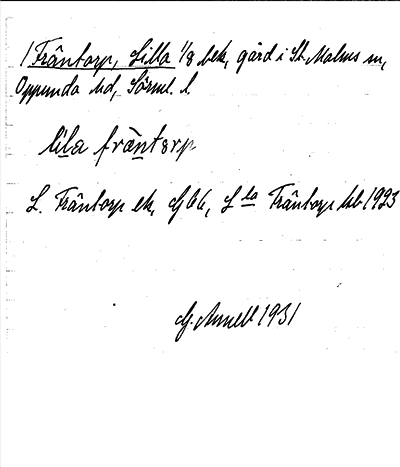 / Frântorp, Lilla 1/8 bek, gård i St. Malms sn,
Oppunda hd, Sörml. l.
lila fräntǝrp
L. Frântorp ek, GbG, L la Frântorp hb 1923
G. Annell 1931